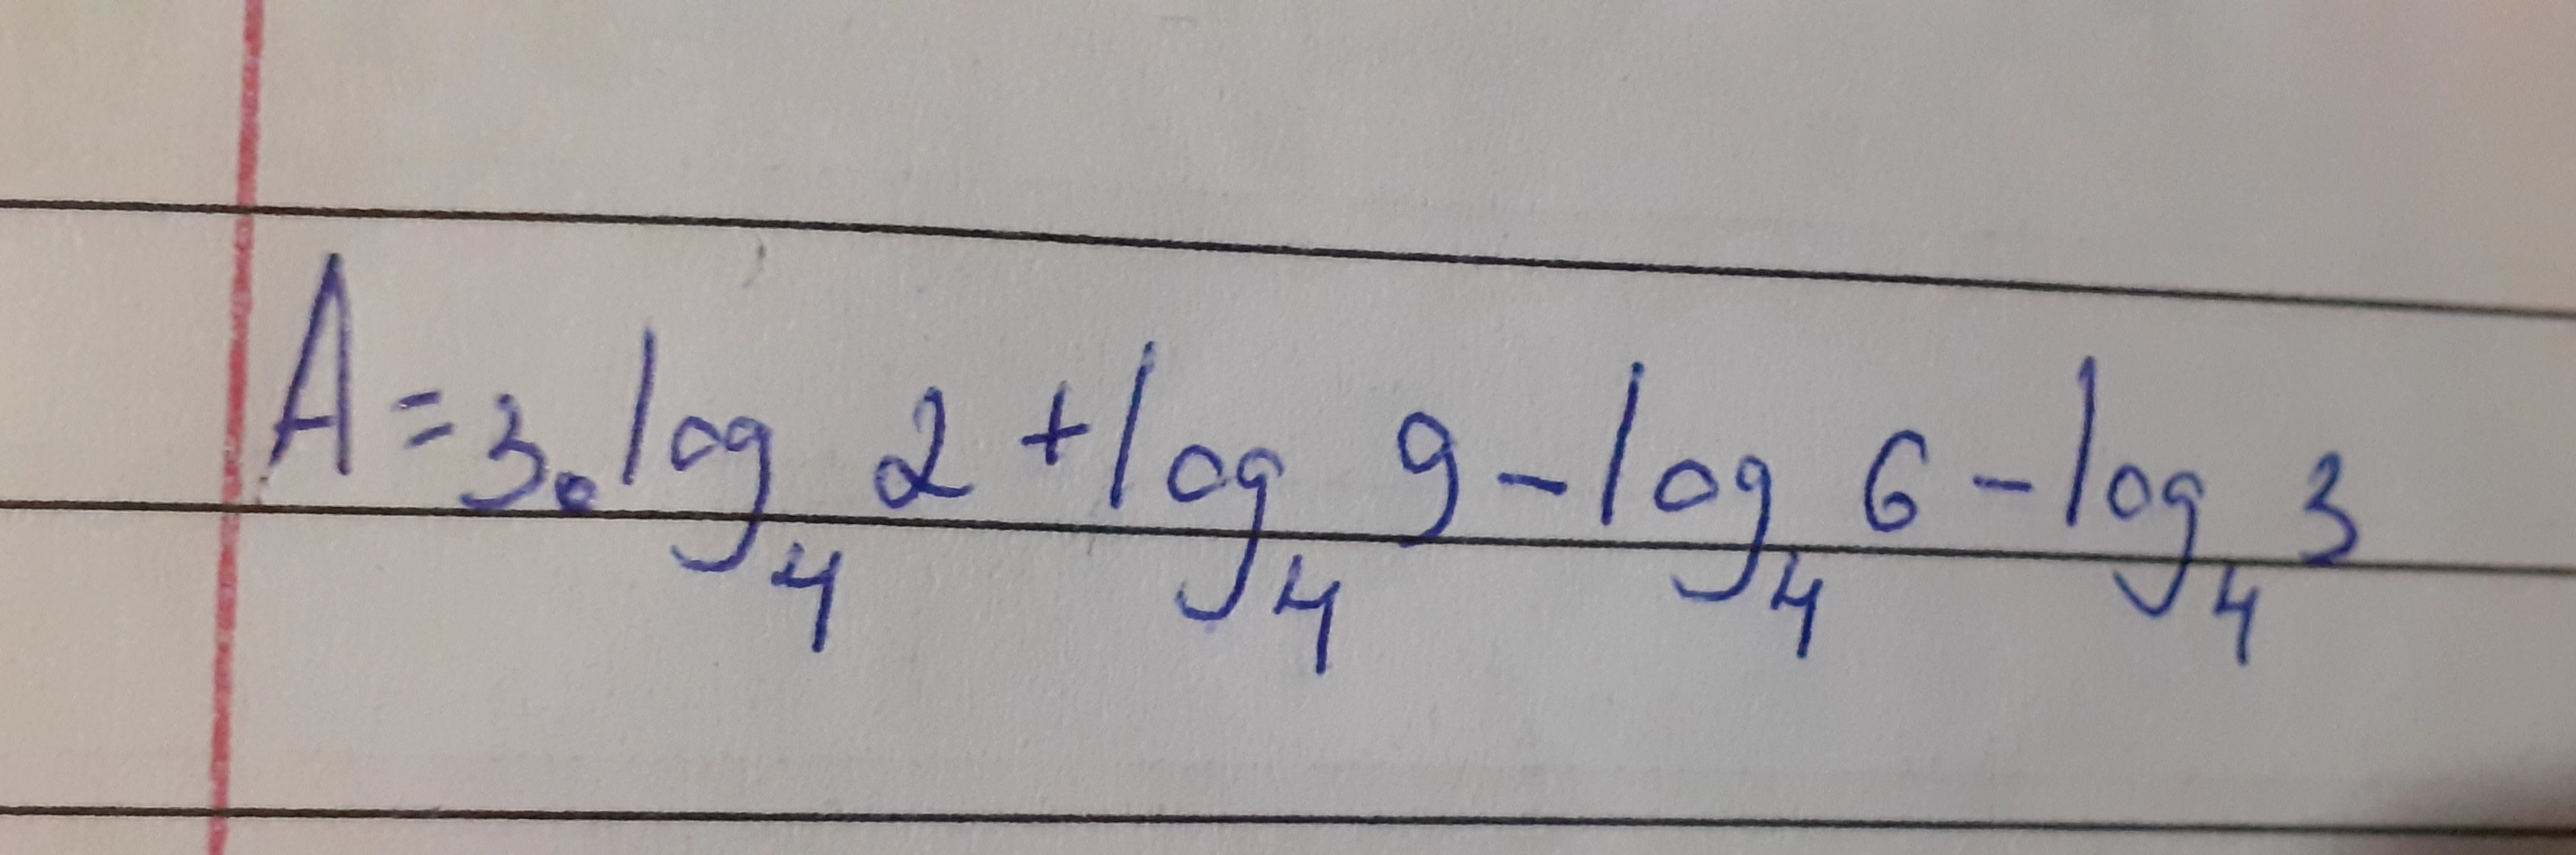 A = 3. log₄ 2 + log₄ 9 - log₄ 6 - log₄ 3